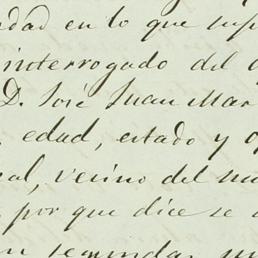 dad en lo que
interrogado del
D. José Juan Mar
edad, estado y
al, vecino del
por que dice se
segundas